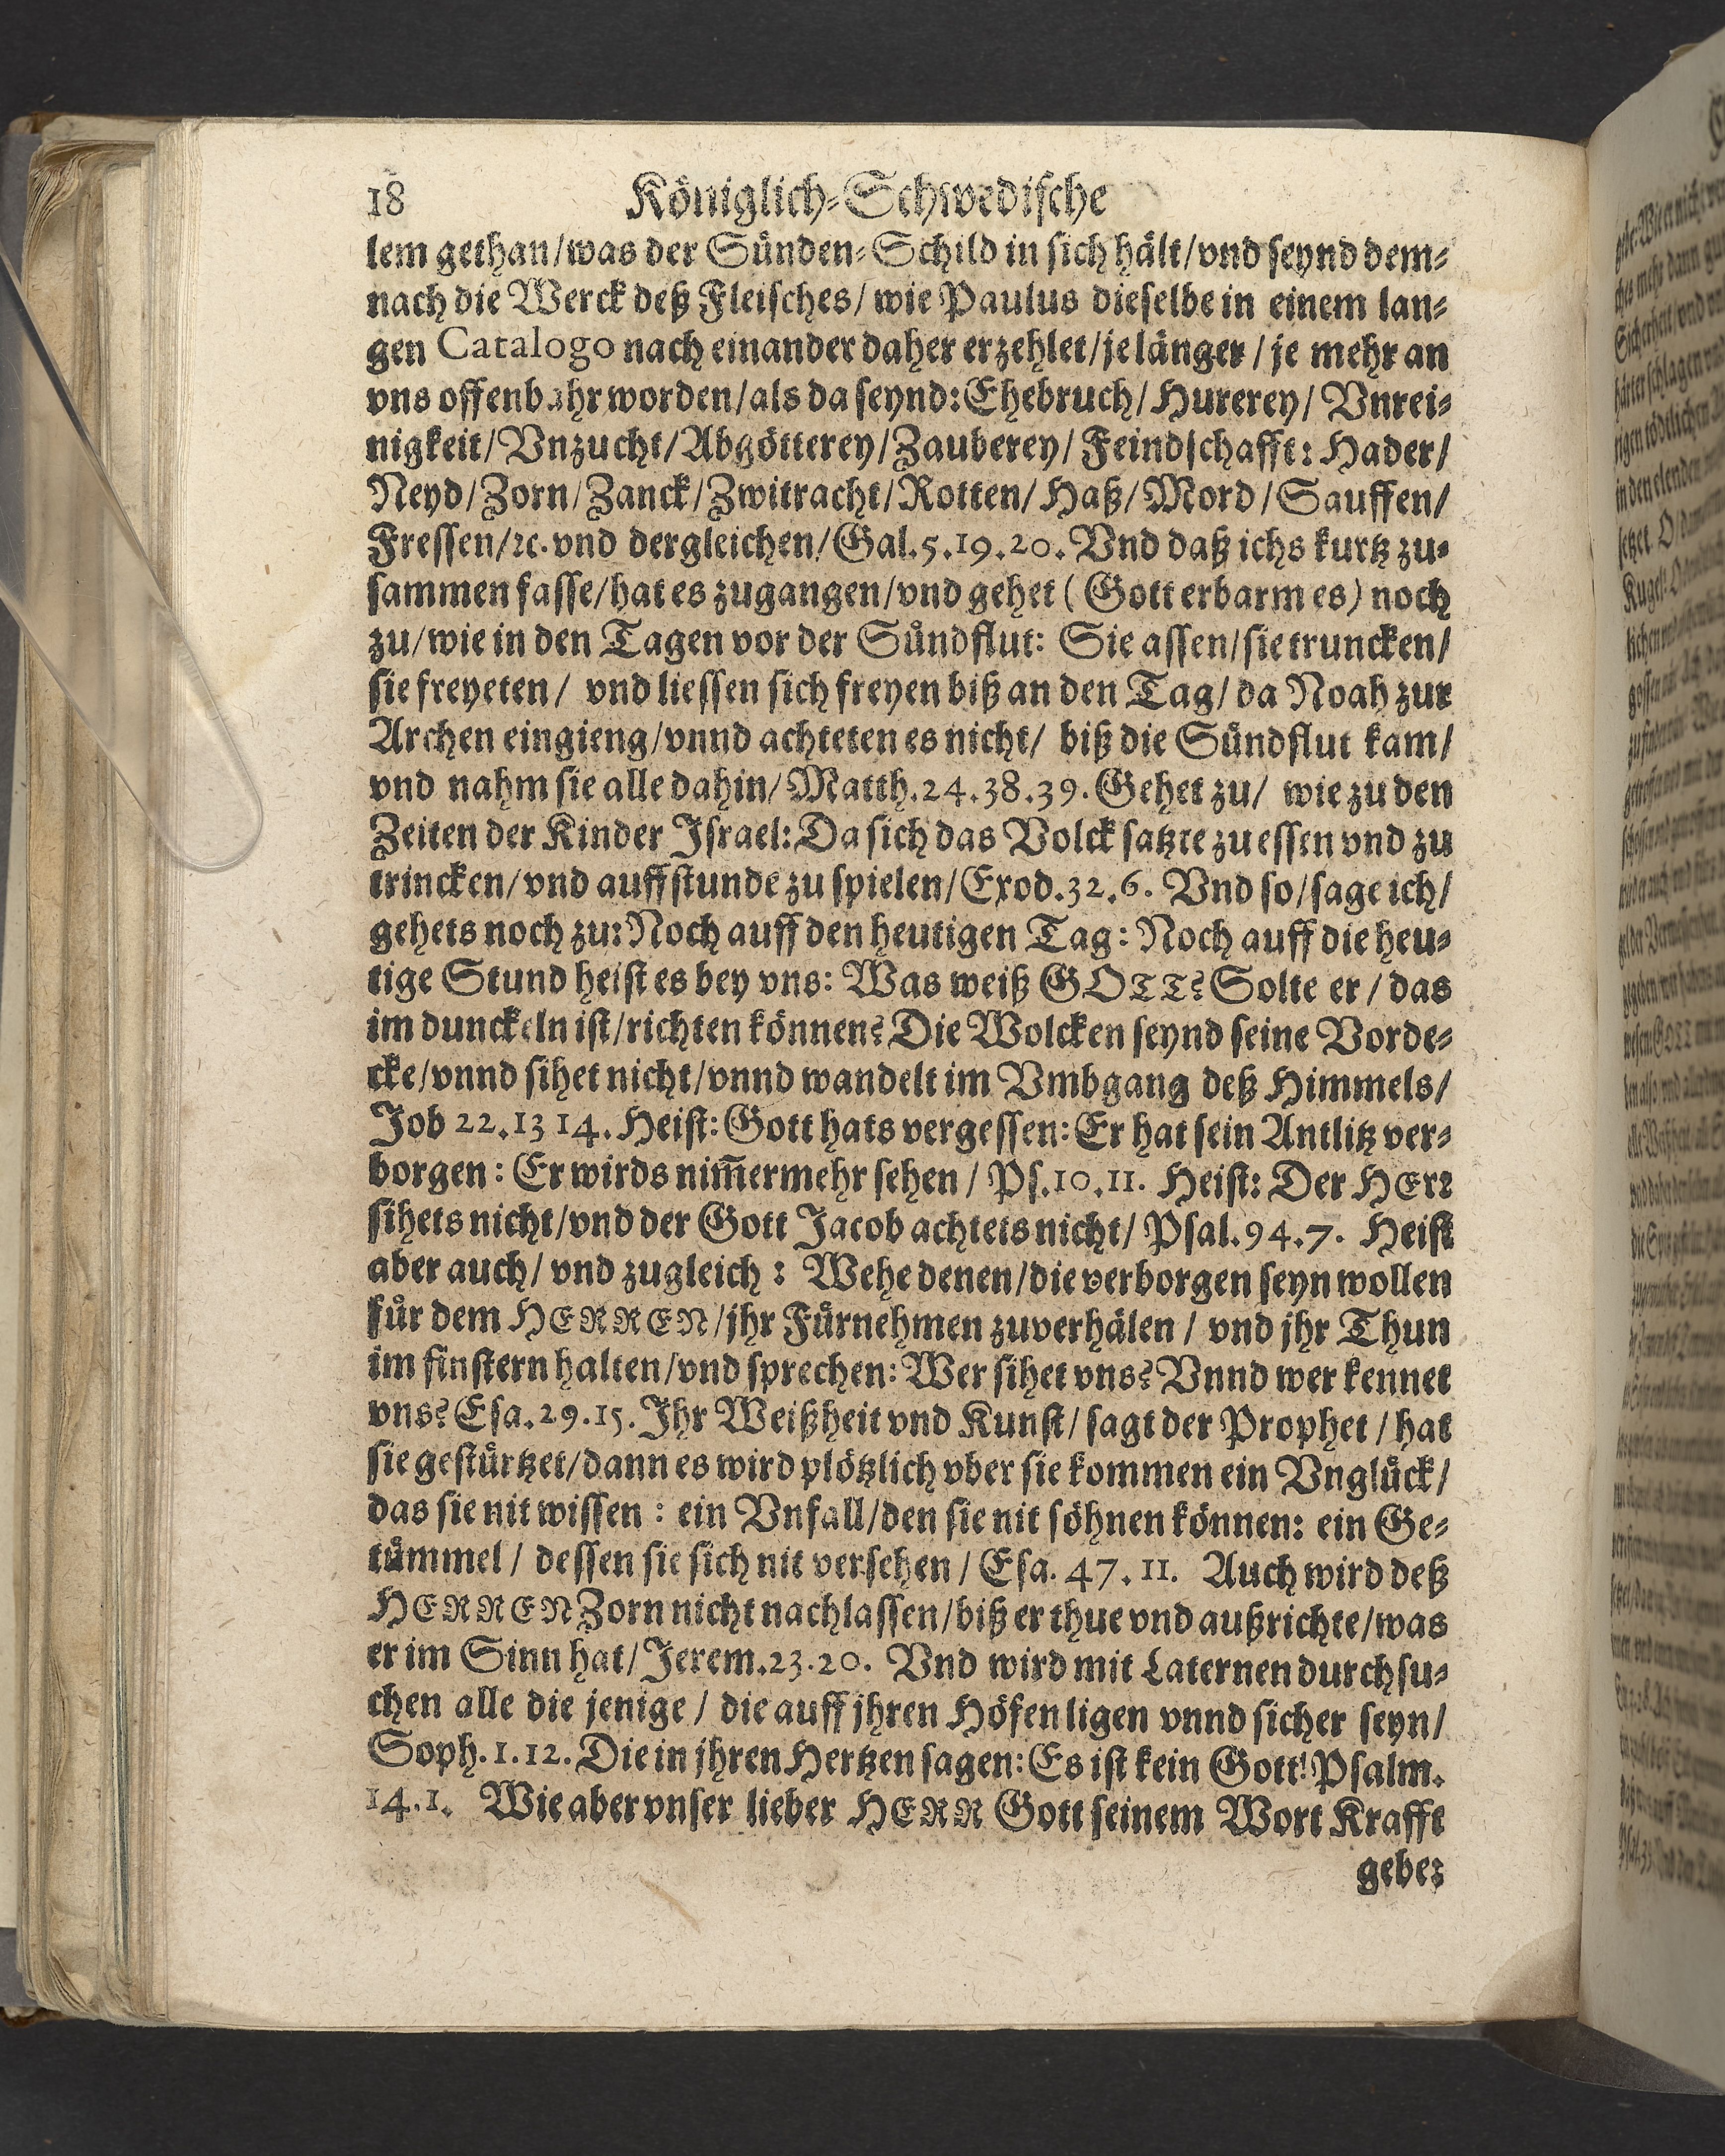 18 Königlich-Schwedische
lem gethan/was der Sünden-Schild in sich hält/vnd seynd dem-
nach die Werck deß Fleisches/ wie Paulus dieselbe in einem lan-
gen Catalogo nach einander daher erzehlet/je länger / je mehr an
vns offenbahr worden/als da seynd: Ehebruch/ Hurerey/ Vnrei-
nigkeit/Vnzucht/Abgötterey/Zauberey/ Feindschafft: Hader/
Neyd/Zorn/Zanck/Zwitracht/Rotten/ Haß/Mord/Sauffen/
Fressen/ꝛc. vnd dergleichen/Gal.5.19.20. Vnd daß ichs kurtz zu-
sammen fasse/hat es zugangen/vnd gehet (Gott erbarm es) noch
zu/wie in den Tagen vor der Sündflut: Sie assen/sie truncken/
sie freyeten/ vnd liessen sich freyen biß an den Tag/ da Noah zur
Archen eingieng/vnnd achteten es nicht/ biß die Sündflut kam/
vnd nahm sie alle dahin/Matth.24.38.39. Gehet zu/ wie zu den
Zeiten der Kinder Israel: Da sich das Volck satzte zu essen vnd zu
trincken/vnd auffstunde zu spielen/Exod.32.6. Vnd so/sage ich/
gehets noch zu: Noch auff den heutigen Tag: Noch auff die heu-
tige Stund heist es bey vns: Was weiß GOTT? Solte er / das
im dunckeln ist/richten können? Die Wolcken seynd seine Vorde-
cke/vnnd sihet nicht/vnnd wandelt im Vmbgang deß Himmels/
Job 22.13 14. Heist: Gott hats vergessen: Er hat sein Antlitz ver-
borgen: Er wirds nim̃ermehr sehen / Ps.10.11. Heist: Der HErꝛ
sihets nicht/vnd der Gott Jacob achtets nicht/ Psal.94.7. Heist
aber auch/ vnd zugleich: Wehe denen/die verborgen seyn wollen
für dem HERREN/jhr Fürnehmen zuverhälen / vnd jhr Thun
im finstern halten/vnd sprechen: Wer sihet vns? Vnnd wer kennet
vns? Esa.29.15. Ihr Weißheit vnd Kunst/ sagt der Prophet / hat
sie gestürtzet/dann es wird plötzlich vber sie kommen ein Vnglück/
das sie nit wissen: ein Vnfall/den sie nit söhnen können: ein Ge-
tümmel / dessen sie sich nit versehen / Esa. 47.11. Auch wird deß
HERREN Zorn nicht nachlassen/biß er thue vnd außrichte/was
er im Sinn hat/Jerem.23.20. Vnd wird mit Laternen durchsu-
chen alle die jenige / die auff jhren Höfen ligen vnnd sicher seyn/
Soph.1.12. Die in jhren Hertzen sagen: Es ist kein Gott! Psalm.
14.1. Wie aber vnser lieber HERR Gott seinem Wort Krafft
gebe: